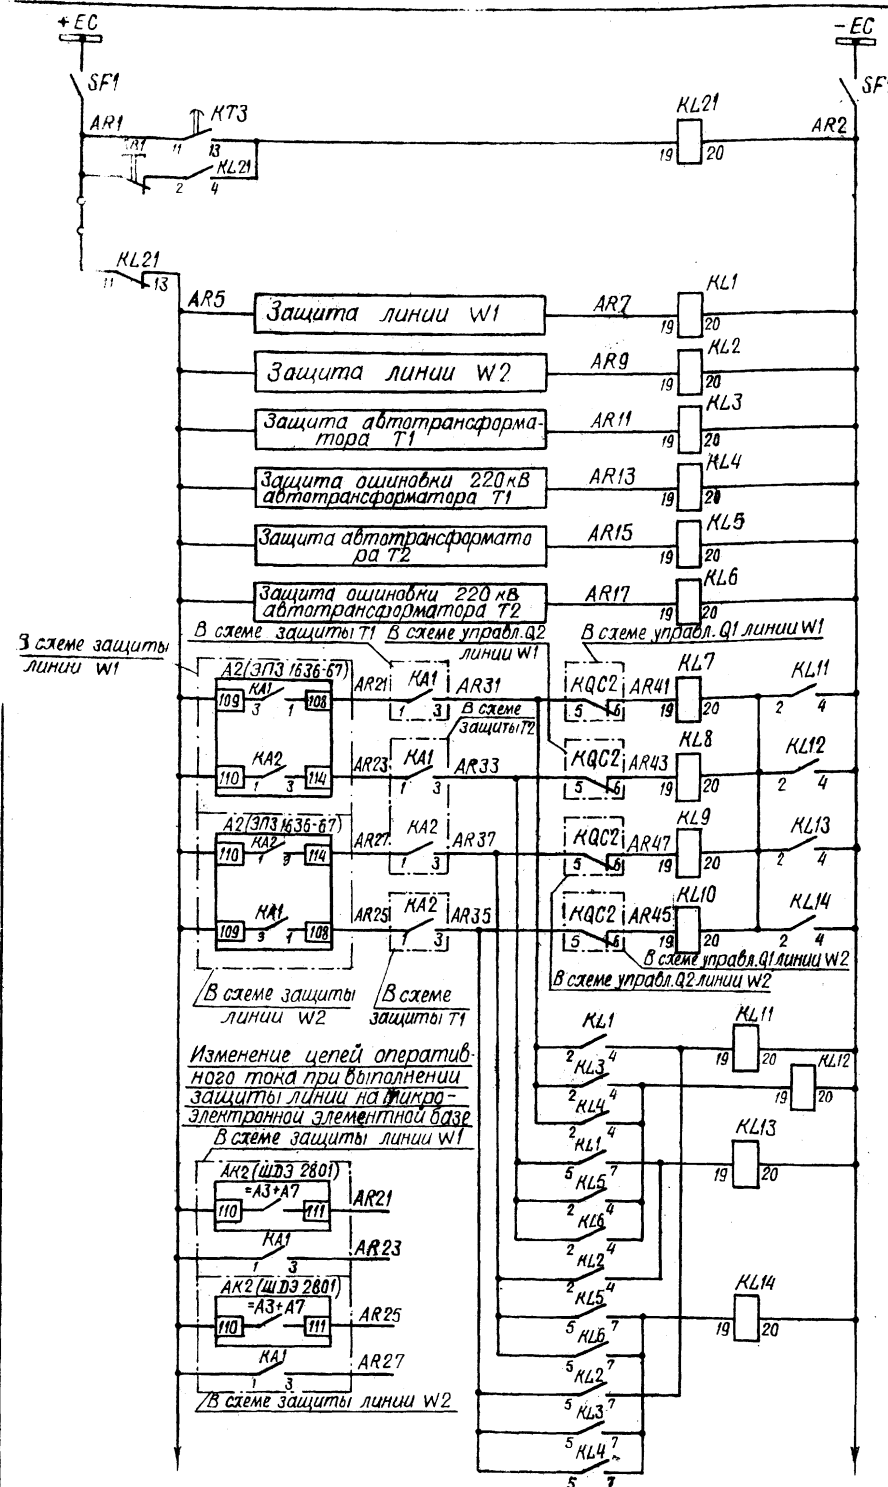 +EC
-EC
SF1
SF1
AR1
KT3
KL21
AR2
11
13
19
20
KL21
2
4
KL21
11
13
AR5
Защита линии W1
AR7
KL1
19
20
Защита линии W2
AR9
KL2
19
20
Защита автотрансформа-
тора T1
AR11
KL3
19
20
Защита ошиновки 220кВ
автотрансформатора T1
AR13
KL4
19
20
Защита автотрансформато
ра T2
AR15
KL5
19
20
Защита ошиновки 220 кВ
автотрансформатора T2
AR17
KL6
19
20
В схеме защиты
линии W1
В схеме защиты T1
В схеме управл. Q2
линии W1
В схеме управл. Q1 линии W1
A2(ЭПЗ 1636-67)
109
KA1
3
1
108
AR21
KA1
1
3
AR31
KQC2
5
6
AR41
KL7
19
20
KL11
2
4
В схеме
защиты T2
110
KA2
1
3
114
AR23
KA1
1
3
AR33
KQC2
5
6
AR43
KL8
19
20
KL12
2
4
A2(ЭПЗ 1636-67)
110
KA2
1
3
114
AR27
KA2
1
3
AR37
KQC2
5
6
AR47
KL9
19
20
KL13
2
4
109
KA1
3
1
108
AR25
KA2
1
3
AR35
KQC2
5
6
AR45
KL10
19
20
KL14
2
4
В схеме управл. Q1 линии W2
В схеме управл. Q2 линии W2
В схеме защиты
линии W2
В схеме
защиты T1
Изменение цепей оператив-
ного тока при выполнении
защиты линии на микро-
электронной элементной базе
В схеме защиты линии W1
AK2 (ШДЭ 2801)
=A3+A7
110
111
AR21
KA1
1
3
AR23
AK2 (ШДЭ 2801)
=A3+A7
110
111
AR25
KA1
1
3
AR27
В схеме защиты линии W2
KL1
2
4
KL11
19
20
KL3
2
4
KL12
19
20
KL4
2
4
KL1
5
7
KL13
19
20
KL5
2
4
KL6
2
4
KL2
2
4
KL5
5
7
KL14
19
20
KL6
5
7
KL2
5
7
KL3
5
7
KL4
5
7